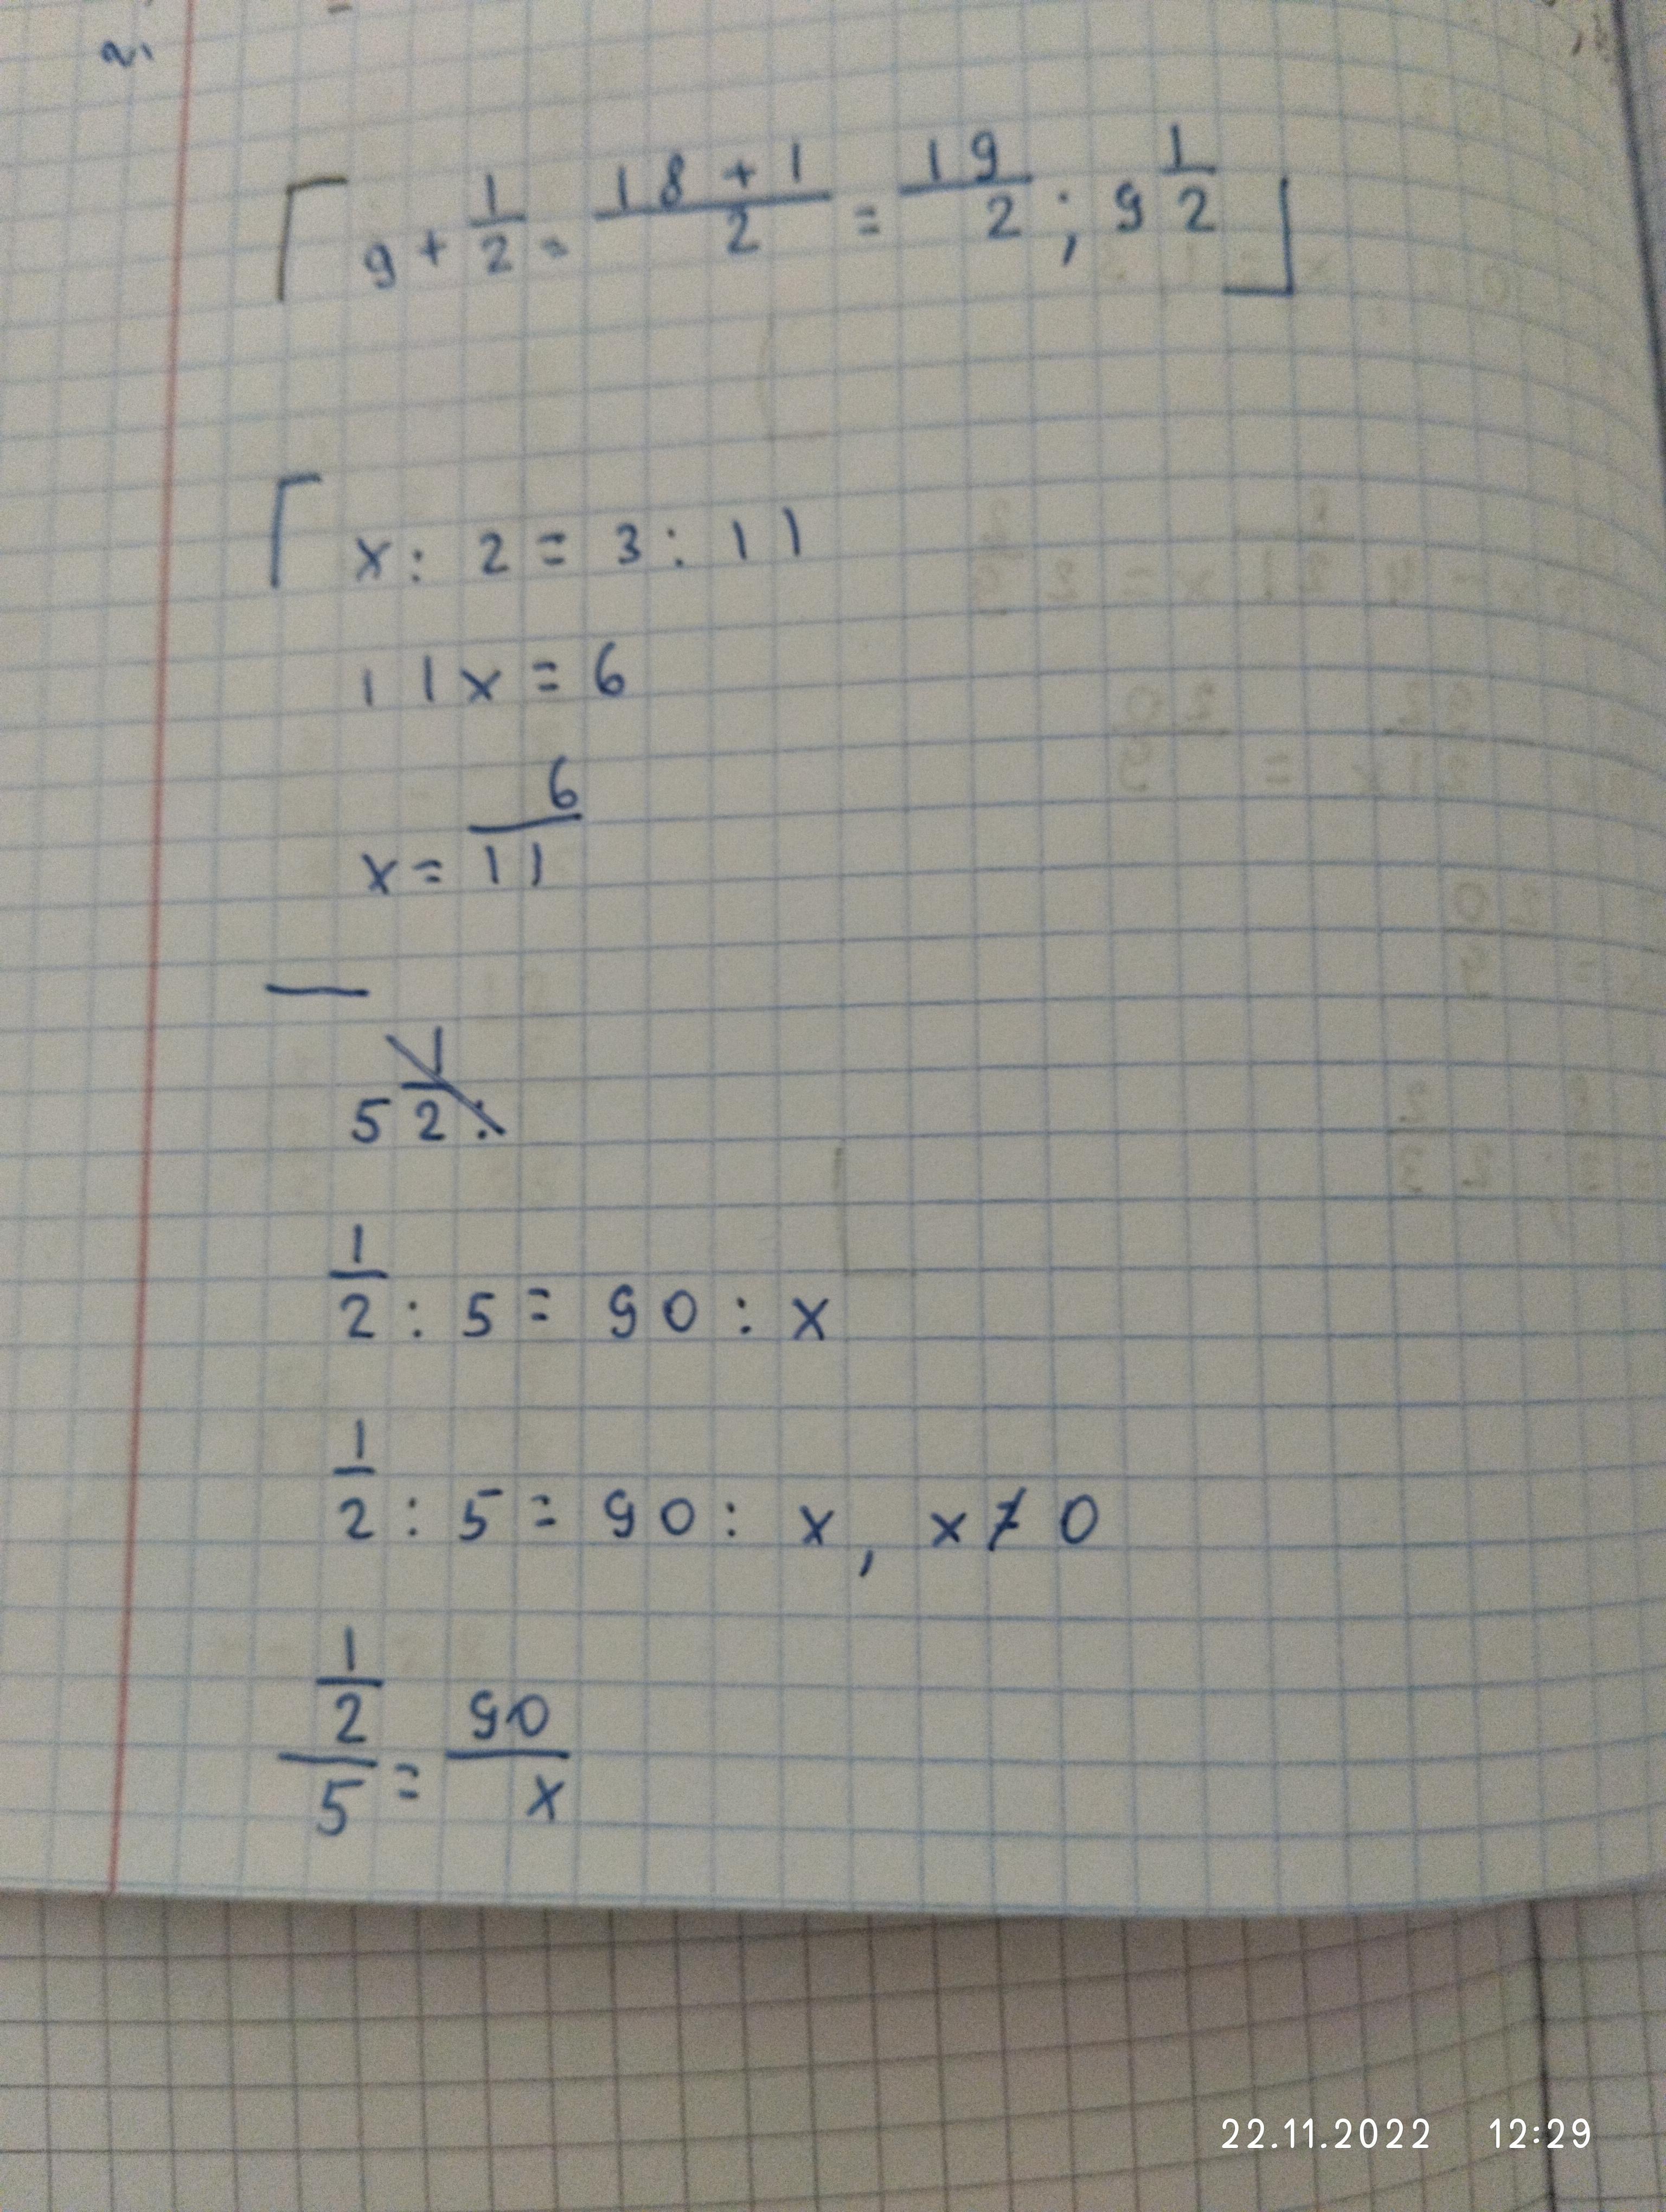 2.
9 + 1/2 = 18 + 1/2 = 19/2 ; 9 1/2
x : 2 = 3 : 11
11x = 6
x = 6/11
5 1/2 :
1/2 : 5 = 90 : x
1/2 : 5 = 90 : x, x ≠ 0
1/2/5 = 90/x
22.11.2022 12:29